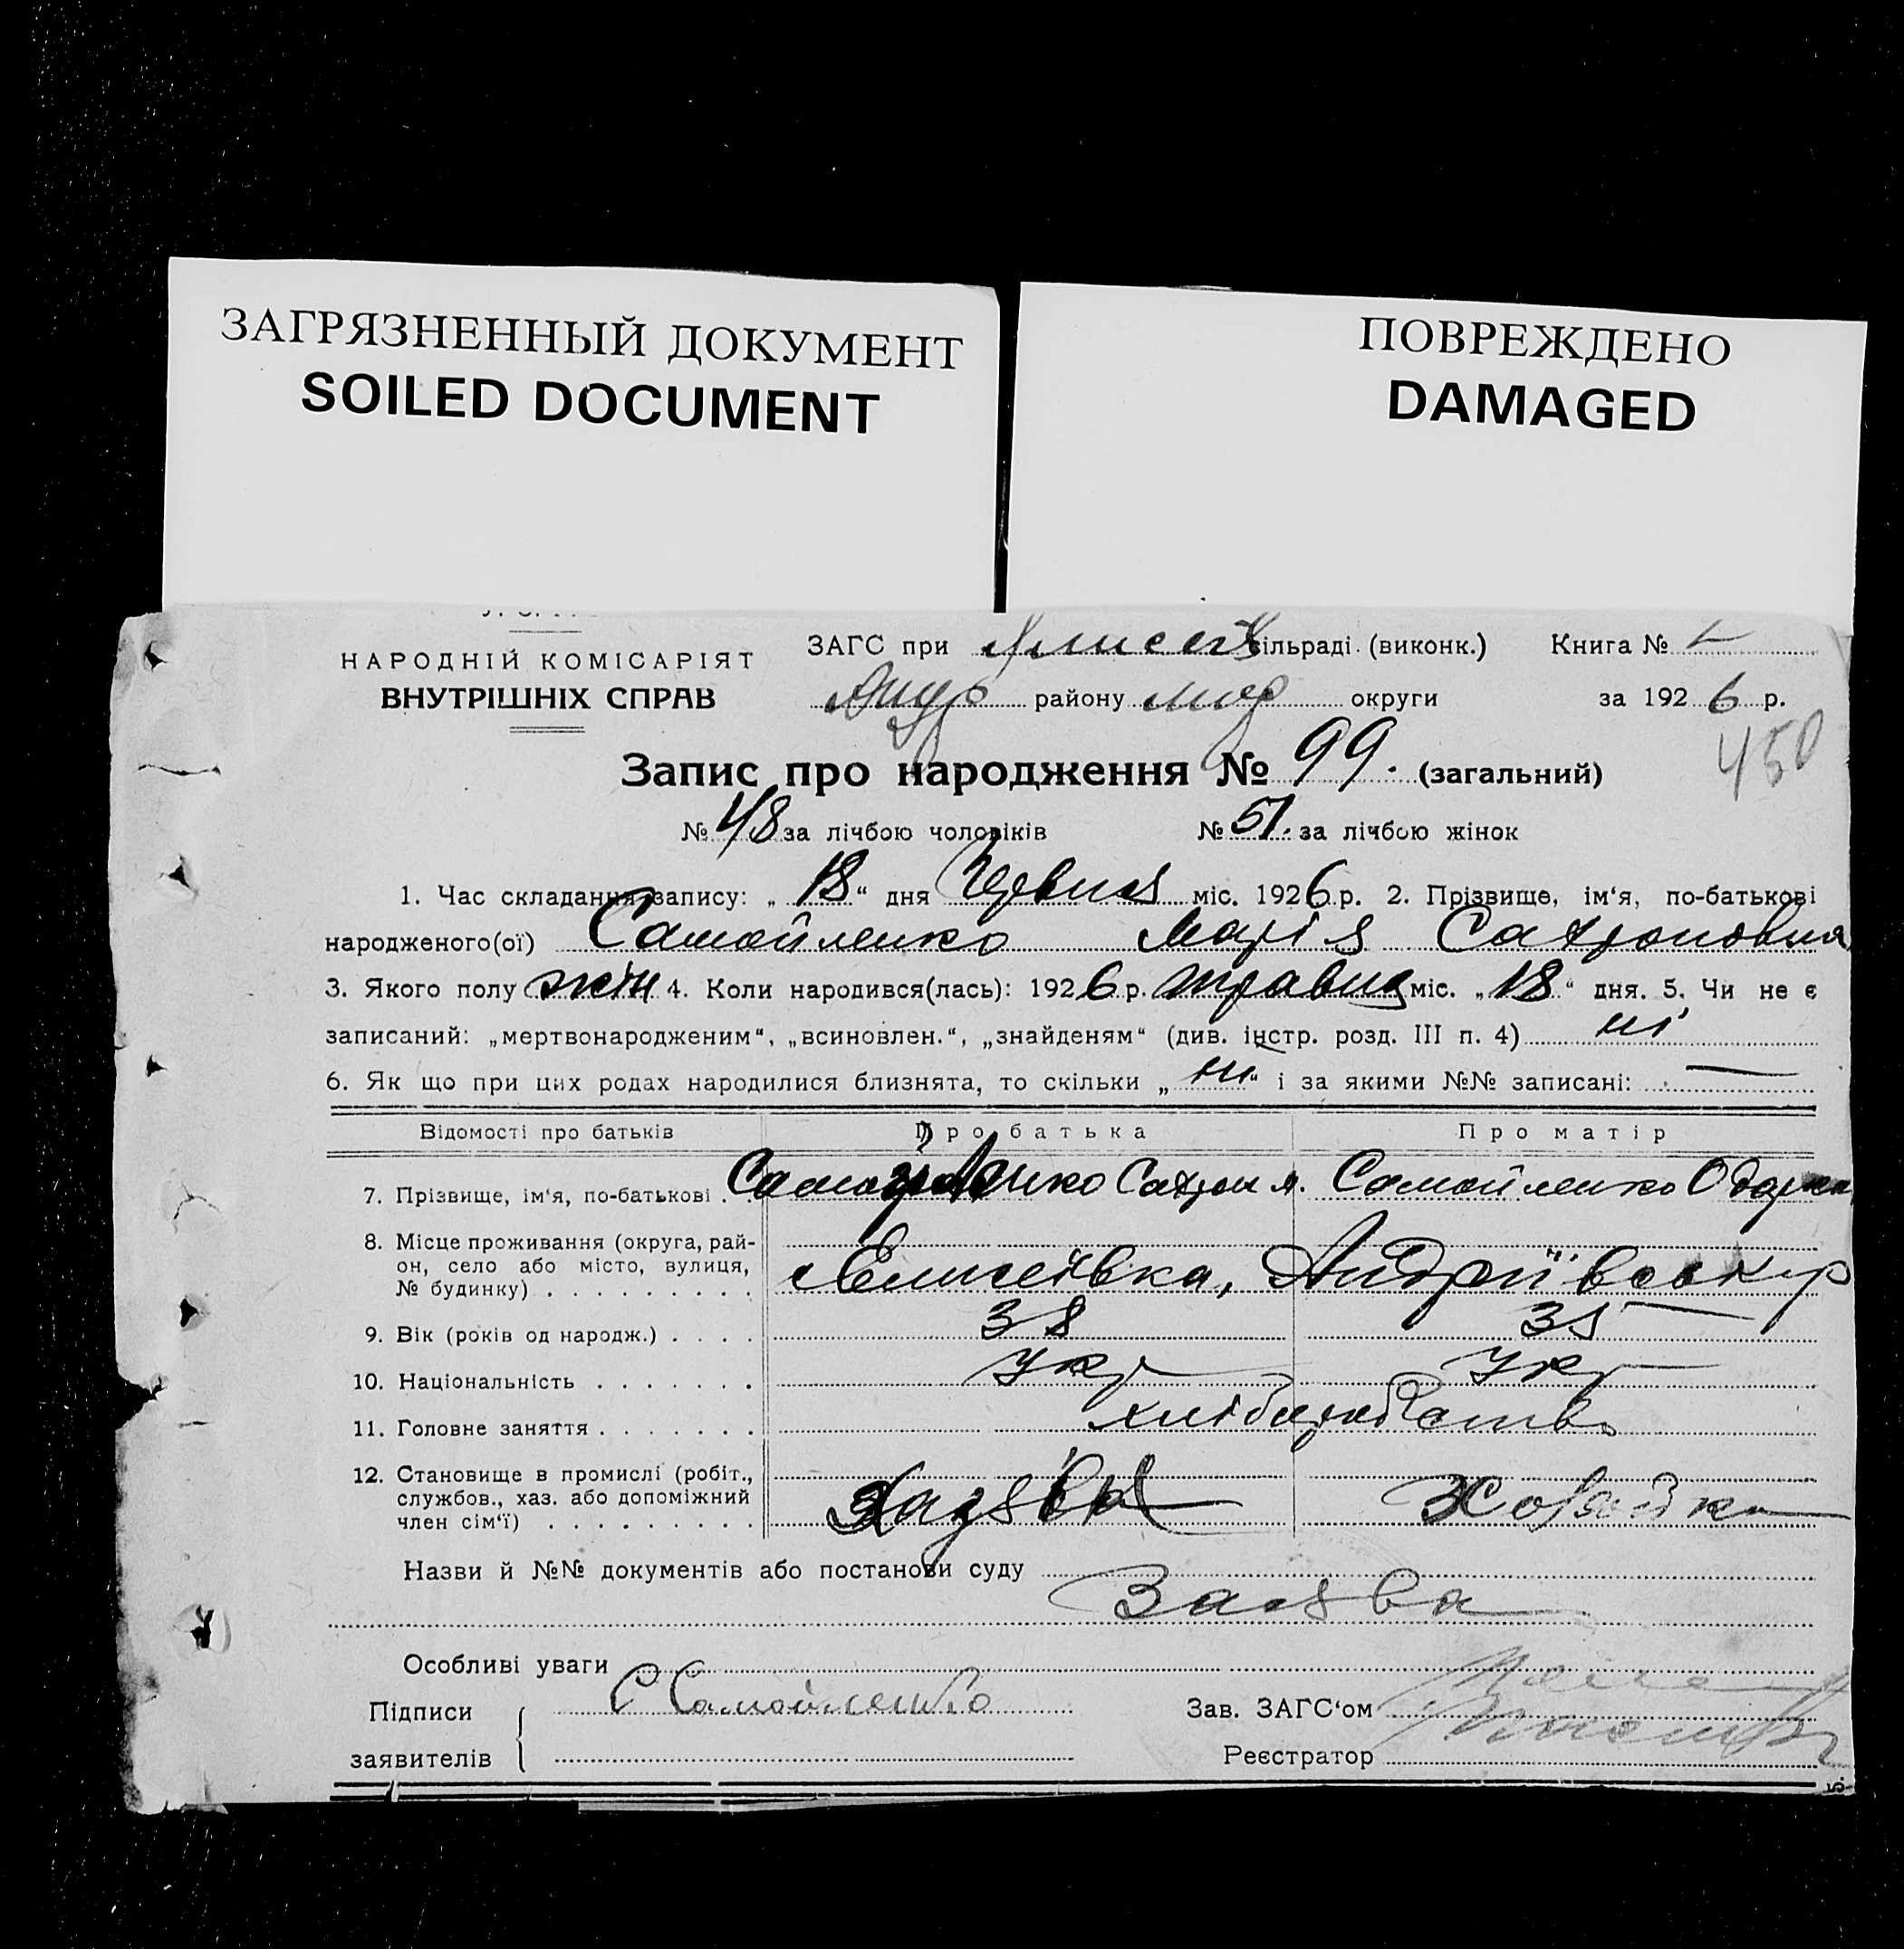 ЗАГРЯЗНЕННЫЙ ДОКУМЕНТ
SOILED DOCUMENT
ПОВРЕЖДЕНО
DAMAGED
НАРОДНІЙ КОМІСАРІЯТ
ВНУТРІШНІХ СПРАВ
ЗАГС при сільраді (виконк.) Книга №
району округи за 1926 р.
450
Запис про народження № 99. (загальний)
№ 48 за лічбою чоловіків № 51. за лічбою жінок
1. Час складання запису: „18“ дня Червня міс. 1926 р. 2. Прізвище, ім‘я, по-батькові
народженого(ої) Самойленко Марія Сахроновна
3. Якого полу жін 4. Коли народився(лась): 1926 р. травня міс. „18“ дня. 5. Чи не є
записаний: „мертвонародженим“, „всиновлен.“, „знайденям“ (див. інстр. розд. III п. 4) ні
6. Як що при цих родах народилися близнята, то скільки „ні“ і за якими №№ записані: —
Відомості про батьків Про батька Про матір
7. Прізвище, ім‘я, по-батькові . . Самойленко Сахрон Самойленко Одарка
8. Місце проживання (округа, рай-
он, село або місто, вулиця,
№ будинку) . . . . . . . . . Єлисеївка, Андріївськ
9. Вік (років од народж.) . . . . 38 35
10. Національність . . . . . . . Укр Укр
11. Головне заняття . . . . . . . хліборобство
12. Становище в промислі (робіт.,
службов., хаз. або допоміжний
член сім‘ї) . . . . . . . . .
Назви й №№ документів або постанови суду
Заява
Особливі уваги
Підписи С Самойленко Зав. ЗАГС‘ом
заявителів Реєстратор